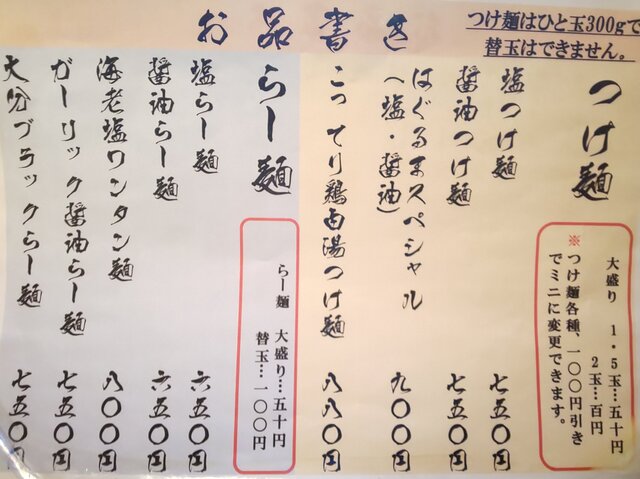 お品書き
つけ麺はひと玉300gで
替玉はできません。
つけ麺
大盛り 1・5玉…五十円
2玉…百円
※つけ麺各種、一〇〇円引き
でミニに変更できます。
塩つけ麺 七五〇円
醤油つけ麺 七五〇円
はぐるまスペシャル
(塩・醤油) 九〇〇円
こってり鶏白湯つけ麺 八八〇円
らー麺
らー麺 大盛り…五十円
替玉…一〇〇円
塩らー麺 六五〇円
醤油らー麺 六五〇円
海老塩ワンタン麺 八〇〇円
ガーリック醤油らー麺 七五〇円
大分ブラックらー麺 七五〇円